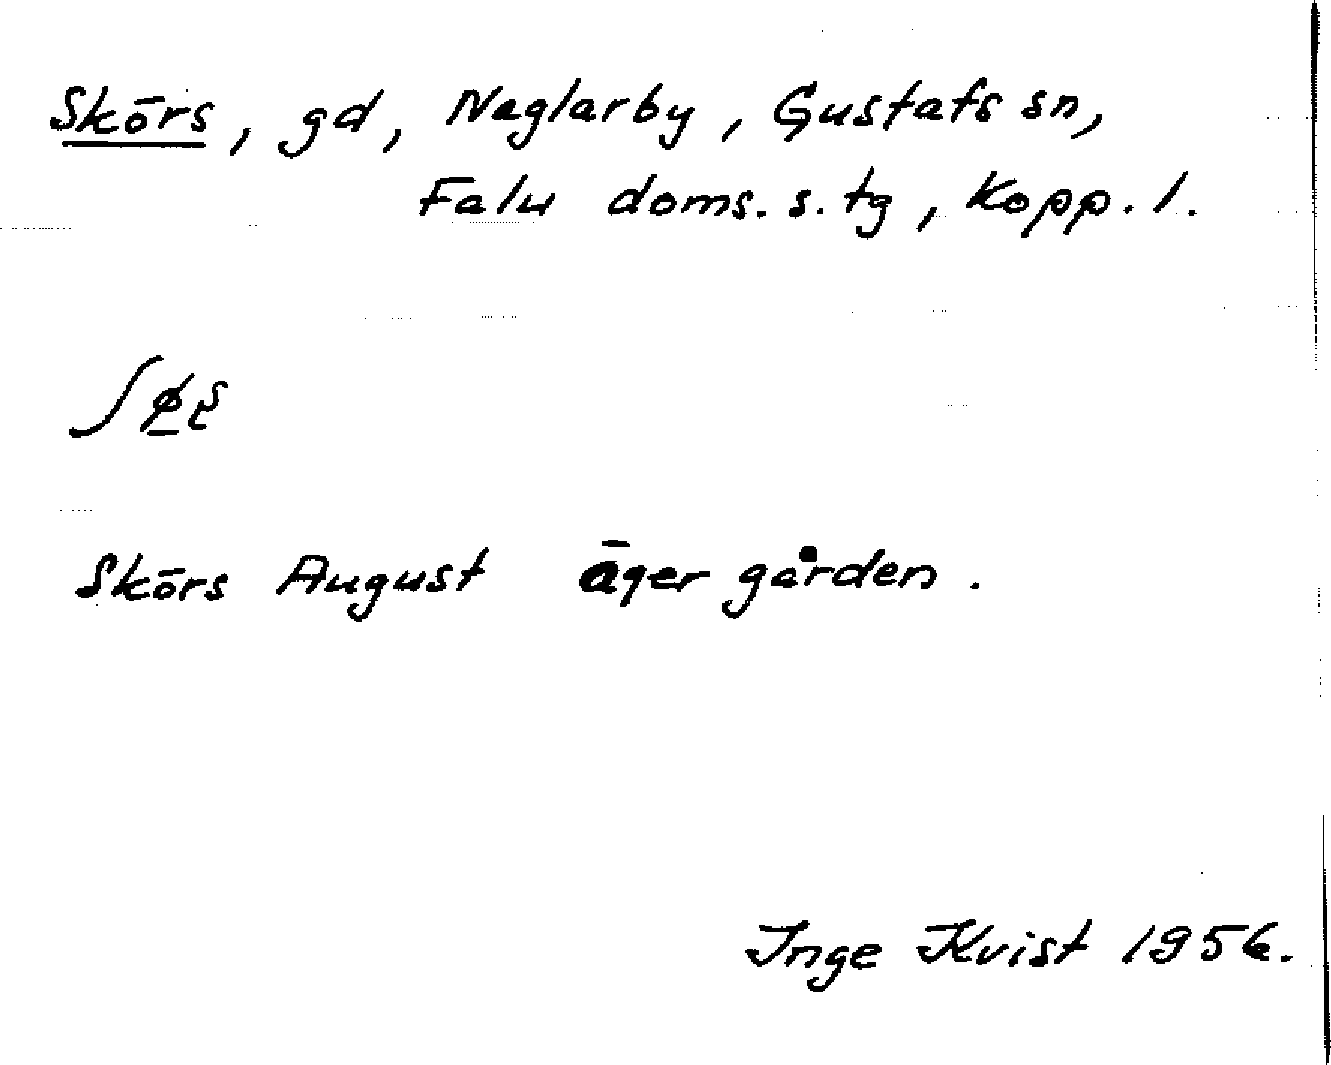 Skörs, gd, Naglarby, Gustafs sn,
Falu doms. s. tg, Kopp. l.
Skörs August äger gården.
Inge Kvist 1956.